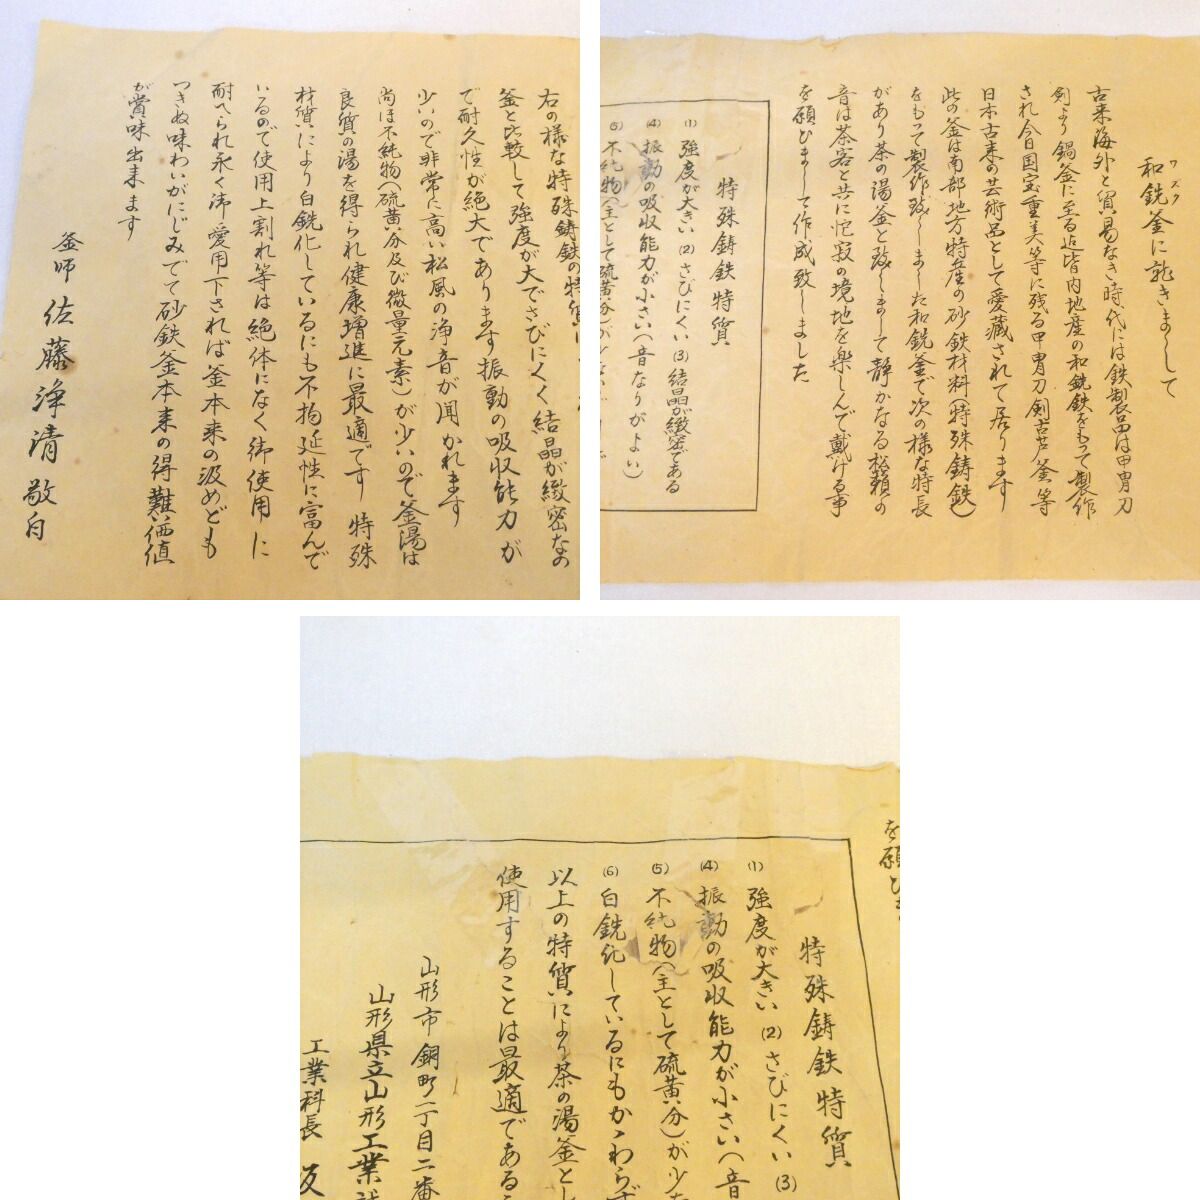 ワズク
和銑釜に就きまして
古来海外と貿易なき時代には鉄製品は甲冑刀
剣より鍋釜に至る迄皆内地産の和銑鉄をもって製作
され今日国宝重美等に残る甲冑刀剣古芦釜等
日本古来の芸術品として愛蔵されて居ります
此の釜は南部地方特産の砂鉄材料(特殊鋳鉄)
をもって製作致しました和銑釜で次の様な特長
があり茶の湯釜と致しまして静かなる松籟の
音は茶客と共に侘寂の境地を楽しんで戴ける事
を願ひまして作成致しました
特殊鋳鉄特質
(1) 強度が大きい (2) さびにくい (3) 結晶が緻密である
(4) 振動の吸収能力が小さい(音なりがよい)
(5) 不純物(主として硫黄分が少ない
右の様な特殊鋳鉄の特質は
釜と比較して強度が大でさびにくく結晶が緻密なの
で耐久性が絶大であります振動の吸収能力が
少いので非常に高い松風の浄音が聞かれます
尚ほ不純物(硫黄分及び微量元素)が少いので釜湯は
良質の湯を得られ健康増進に最適です 特殊
材質により白銑化しているにも不拘延性に富んで
いるので使用上割れ等は絶体になく御使用に
耐へられ永く御愛用下されば釜本来の汲めども
つきぬ味わいがにじみでて砂鉄釜本来の得難い価値
が賞味出来ます
釜師 佐藤浄清敬白
を願ひま
特殊鋳鉄特質
(1) 強度が大きい (2) さびにくい (3)
(4) 振動の吸収能力が小さい(音
(5) 不純物(主として硫黄分)が少な
(6) 白銑化しているにもかゝわらず
以上の特質により茶の湯釜とし
使用することは最適である
山形市銅町二丁目二番
山形県立山形工業
工業科長